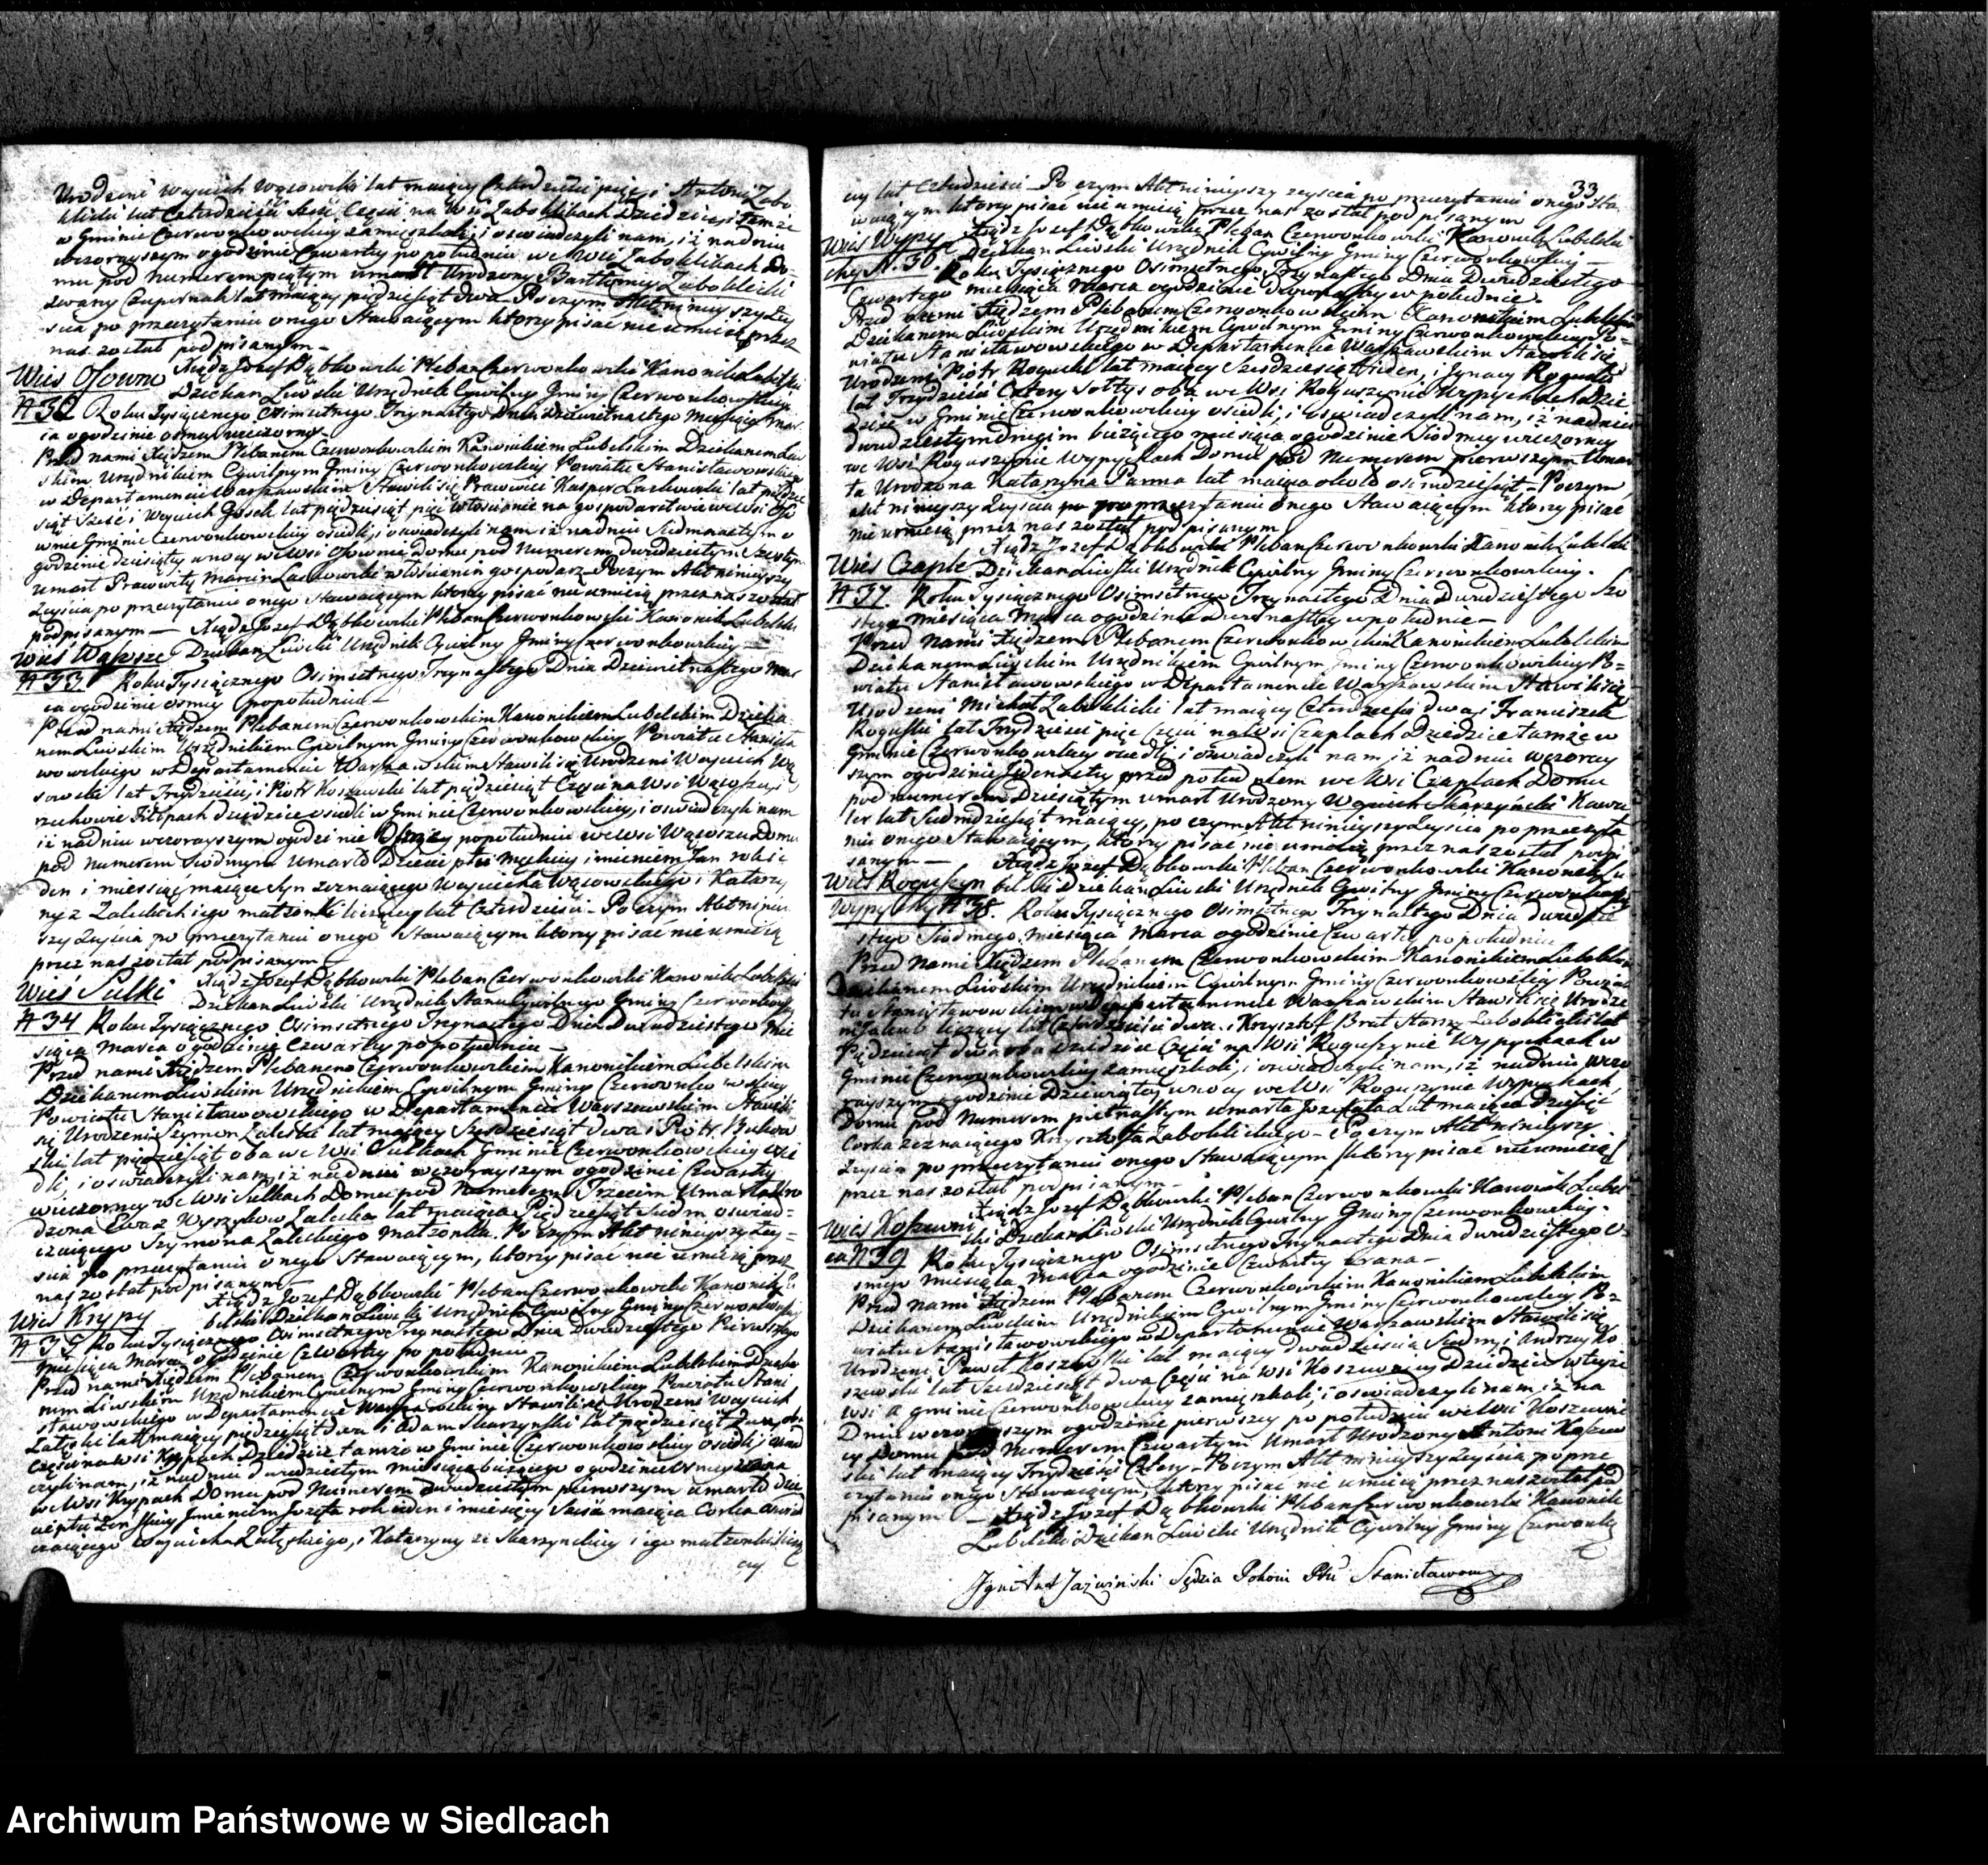 Urodzeni Woyciech Wąsowski lat maiący Czterdzieści pięć i Antoni Zabo
klicki lat Czterdzieści sześć Części na Wsi Zaboklikach Dziedzice, tamże
w Gminie Czerwonkowskiey zamieszkali, i oświadczyli nam, iż na dniu
wczorayszym o godzinie Czwartey po południu we Wsi Zaboklikach Do=
mu pod Numerem piątym umarł Urodzony Bartłomiey Zaboklicki
zwany Czupurnak lat maiący pięćdziesiąt dwa. Poczym Akt ninieyszy Zey
ścia po przeczytaniu onego Stawaiącym którzy pisać nie umieią przez
nas został podpisanym –
Xiądz Jozef Dąbkowski Pleban Czerwonkowski Kanonik Lubelski
Wieś Osowno Dziekan Liwski Urzędnik Cywilny Gminy Czerwonkowskiey
N 32 Roku Tysiącznego Osimsetnego Trzynastego Dnia Dziewiętnastego Miesiąca Mar
ca o godzinie osmey wieczorney
Przed nami Xiędzem Plebanem Czerwonkowskim Kanonikiem Lubelskim Dziekanem Liw
skim Urzędnikiem Cywilnym Gminy Czerwonkowskiey Powiatu Stanisławowskiego
w Departamencie Warszawskim Stawili się Prawowici Kasper Laskowski lat pięćdzie
siąt sześć i Woyciech Gosek lat pięćdziesiąt pięć włościanie na gospodarstwa we Wsi Oso
wnie Gminie Czerwonkowskiey osiedli, i oświadczyli nam iż na dniu Siedmnastym o
godzinie dziesiątey w nocy we Wsi Osownie Domu pod Numerem dwudziestym Szóstym
umarł Prawowity Marcin Laskowski włościanin gospodarz – Poczym Akt ninieyszy
Zeyścia po przeczytaniu onego Stawaiącym którzy pisać nie umieią przez nas został
podpisanym — Xiądz Jozef Dąbkowski Pleban Czerwonkowski Kanonik Lubelski
Wieś Wąsosze Dziekan Liwski Urzędnik Cywilny Gminy Czerwonkowskiey —
N 33. Roku Tysiącznego Osimsetnego Trzynastego Dnia Dziewiętnastego Mar
ca o godzinie osmey popołudniu –
Przed nami Xiędzem Plebanem Czerwonkowskim Kanonikiem Lubelskim Dzieka
nem Liwskim Urzędnikiem Cywilnym Gminy Czerwonkowskiey Powiatu Stanisła
wowskiego w Departamencie Warszawskim Stawili się Urodzeni Woyciech Wą
sowski lat Trzydzieści, i Piotr Koszewski lat pięćdziesiąt Części na Wsi Wąsoszu,
dziedzice osiedli w Gminie Czerwonkowskiey, i oświadczyli nam
iż na dniu wczorayszym o godzinie popołudniu we Wsi Wąsoszu Domu
pod Numerem Siodmym umarło Dziecie płci męskiey imieniem Jan rok ie
den i miesiąc maiące Syn zeznaiącego Woyciecha Wąsowskiego i Katarzy
ny z Zaleskich iego małżonki liczącey lat Czterdzieści – Poczym Akt niniey
szy Zeyścia po przeczytaniu onego Stawaiącym którzy pisać nie umieią
przez nas został podpisanym
Xiądz Jozef Dąbkowski Pleban Czerwonkowski Kanonik Lubelski
Wieś Sulki Dziekan Liwski Urzędnik Stanu Cywilnego Gminy Czerwonkowsk
N 34 Roku Tysiącznego Osimsetnego Trzynastego Dnia Dwudziestego Mie
siąca Marca o godzinie Czwartey po południu –
Przed nami Xiędzem Plebanem Czerwonkowskim Kanonikiem Lubelskim
Dziekanem Liwskim Urzędnikiem Cywilnym Gminy Czerwonkowskiey
Powiatu Stanisławowskiego w Departamencie Warszawskim Stawili
się Urodzeni Szymon Zaleski lat maiący Sześćdziesiąt dwa i Piotr
ski lat pięćdziesiąt oba we Wsi Sulkach Gminie Czerwonkowskiey osie
dli, i oświadczyli nam, iż na dniu wczorayszym o godzinie Czwartey
wieczorney we Wsi Sulkach Domu pod Numerem Trzecim Umarła Uro
dzona Ewa z Wyszkow Zaleska lat maiąca Pięćdziesiąt siedm oświad=
czaiącego Szymona Zaleskiego małżonka. Poczym Akt ninieyszy Zey=
ścia po przeczytaniu onego Stawaiącym, którzy pisać nie umieią przez
nas został podpisanym –
Xiądz Jozef Dąbkowski Pleban Czerwonkowski Kanonik Lu
Wieś Krypy belski Dziekan Liwski Urzędnik Cywilny Gminy Czerwonkowski
N 35 Roku Tysiącznego Osimsetnego Trzynastego Dnia Dwudziestego Pierwszego
Miesiąca Marca o godzinie Czwartey po południu
Przed nami Xiędzem Plebanem Czerwonkowskim Kanonikiem Lubelskim Dzieka
nem Liwskim Urzędnikiem Cywilnym Gminy Czerwonkowskiey Powiatu Stani
sławowskiego w Departamencie Warszawskim Stawili się Urodzeni Woyciech
Załęski lat maiący pięćdziesiąt dwa i Adam Skarzynski lat pięćdziesiąt dwa oba
Części na Wsi Krypach Dziedzice tamże w Gminie Czerwonkowskiey osiedli, i oświad
czyli nam, iż na dniu dwudziestym miesiąca bieżącego o godzinie osmey z rana
we Wsi Krypach Domu pod Numerem dwudziestym pierwszym umarło dzie
cie płci Żeńskiey Imieniem Jozefa rok ieden i miesięcy sześć maiąca Corka oświad
czaiącego Woyciecha Załęskiego, i Katarzyny ze Skarzynskich iego małżonki licz
cy
33
cy lat Czterdzieści – Poczym Akt ninieyszy zeyścia po przeczytaniu onego Sta
waiącym którzy pisać nie umieią przez nas został podpisanym
Xiądz Jozef Dąbkowski Pleban Czerwonkowski Kanonik Lubelski
Wieś Wypy Dziekan Liwski Urzędnik Cywilny Gminy Czerwonkowskiey –
chy N. 36. Roku Tysiącznego Osimsetnego Trzynastego Dnia Dwudziestego
Czwartego miesiąca Marca o godzinie dwunastey w południe.
Przed nami Xiędzem Plebanem Czerwonkowskim Kanonikiem Lubelskim
Dziekanem Liwskim Urzędnikiem Cywilnym Gminy Czerwonkowskiey Po=
wiatu Stanisławowskiego w Departamencie Warszawskim Stawili się
Urodzeni Piotr Roguski lat maiący Sześćdziesiąt ieden, i Ignacy Roguski
lat Trzydzieści Cztery Sołtys oba we Wsi Roguszynie Wypychach Dzie
dzice w Gminie Czerwonkowskiey osiedli, i oświadczyli nam, iż na dniu
dwudziestym drugim bieżącego miesiąca o godzinie Siodmey wieczorney
we Wsi Roguszynie Wypychach Domu pod Numerem pierwszym Umar
ła Urodzona Katarzyna Panna lat maiąca około osimdziesiąt – Poczym
akt ninieyszy Zeyścia po przeczytaniu onego Stawaiącym którzy pisać
nie umieią przez nas został podpisanym
Xiądz Jozef Dąbkowski Pleban Czerwonkowski Kanonik Lubelski
Wieś Czaple Dziekan Liwski Urzędnik Cywilny Gminy Czerwonkowskiey.
N 37. Roku Tysiącznego Osimsetnego Trzynastego Dnia Dwudziestego Szo
stego miesiąca Marca o godzinie Dwunastey w południe –
Przed nami Xiędzem Plebanem Czerwonkowskim Kanonikiem Lubelskim
Dziekanem Liwskim Urzędnikiem Cywilnym Gminy Czerwonkowskiey Po=
wiatu Stanisławowskiego w Departamencie Warszawskim Stawili się
Urodzeni Michał Zaboklicki lat maiący Czterdzieści dwa, i Franciszek
Roguski lat Trzydzieści pięć Części na Wsi Czaplach Dziedzice tamże w
Gminie Czerwonkowskiey osiedli, i oświadczyli nam, iż na dniu wczoray
szym o godzinie Jedenastey przed południem we Wsi Czaplach Domu
pod numerem Dziesiątym umarł Urodzony Woyciech Skarzynski Kawa
ler lat Siedmdziesiąt maiący, po czym Akt ninieyszy Zeyścia po przeczyta
niu onego Stawaiącym, którzy pisać nie umieią przez nas został podpi
sanym — Xiądz Jozef Dąbkowski Pleban Czerwonkowski Kanonik Lu
Wieś Roguszyn belski Dziekan Liwski Urzędnik Cywilny Gminy Czerwonkowsk
Wypychy N 38. Roku Tysiącznego Osimsetnego Trzynastego Dnia dwudzie
stego Siodmego Miesiąca Marca o godzinie Czwartey po południu
Przed nami Xiędzem Plebanem Czerwonkowskim Kanonikiem Lubelskim
Dziekanem Liwskim Urzędnikiem Cywilnym Gminy Czerwonkowskiey Powia
tu Stanisławowskiego w Departamencie Warszawskim Stawili się Urodze
ni Jakub liczący lat Czterdzieści dwa, i Krzysztof Brat Starszy Zaboklicki lat
Pięćdziesiąt dwa oba Dziedzice Części na Wsi Roguszynie Wypychach w
Gminie Czerwonkowskiey zamieszkali, i oświadczyli nam, iż na dniu wczo
rayszym o godzinie Dziewiątey w nocy we Wsi Roguszynie Wypychach,
Domu pod Numerem piętnastym umarła Jozefata lat maiąca Dziesięć
Corka zeznaiącego Krzysztofa Zaboklickiego – Poczym Akt ninieyszy
Zeyścia po przeczytaniu onego Stawaiącym którzy pisać nie umieią
przez nas został podpisanym –
Xiądz Jozef Dąbkowski Pleban Czerwonkowski Kanonik Lubel
Wieś Koszewni ski Dziekan Liwski Urzędnik Cywilny Gminy Czerwonkowskiey.
ca N 39 Roku Tysiącznego Osimsetnego Trzynastego Dnia dwudziestego O
smego Miesiąca Marca o godzinie Czwartey z rana –
Przed nami Xiędzem Plebanem Czerwonkowskim Kanonikiem Lubelskim
Dziekanem Liwskim Urzędnikiem Cywilnym Gminy Czerwonkowskiey Po=
wiatu Stanisławowskiego w Departamencie Warszawskim Stawili się
Urodzeni Paweł Koszewski lat maiący dwadzieścia Siedm, i Andrzey Ko
szewski lat Sześćdziesiąt dwa Części na Wsi Koszewnicy Dziedzice w teyże
Wsi a gminie Czerwonkowskiey zamieszkali, i oświadczyli nam, iż na
Dniu wczorayszym o godzinie pierwszey po południu we Wsi Koszewni
cy Domu pod Numerem Czwartym Umarł Urodzony Antoni Koszew
ski lat maiący Trzydzieści Cztery – Poczym Akt ninieyszy Zeyścia po prze
czytaniu onego Stawaiącym, którzy pisać nie umieią przez nas został pod
pisanym – Xiądz Jozef Dąbkowski Pleban Czerwonkowski Kanonik
Lubelski Dziekan Liwski Urzędnik Cywilny Gminy Czerwonk
Jaźwiński Sędzia Pokoiu Ptu Stanisławow
Archiwum Państwowe w Siedlcach